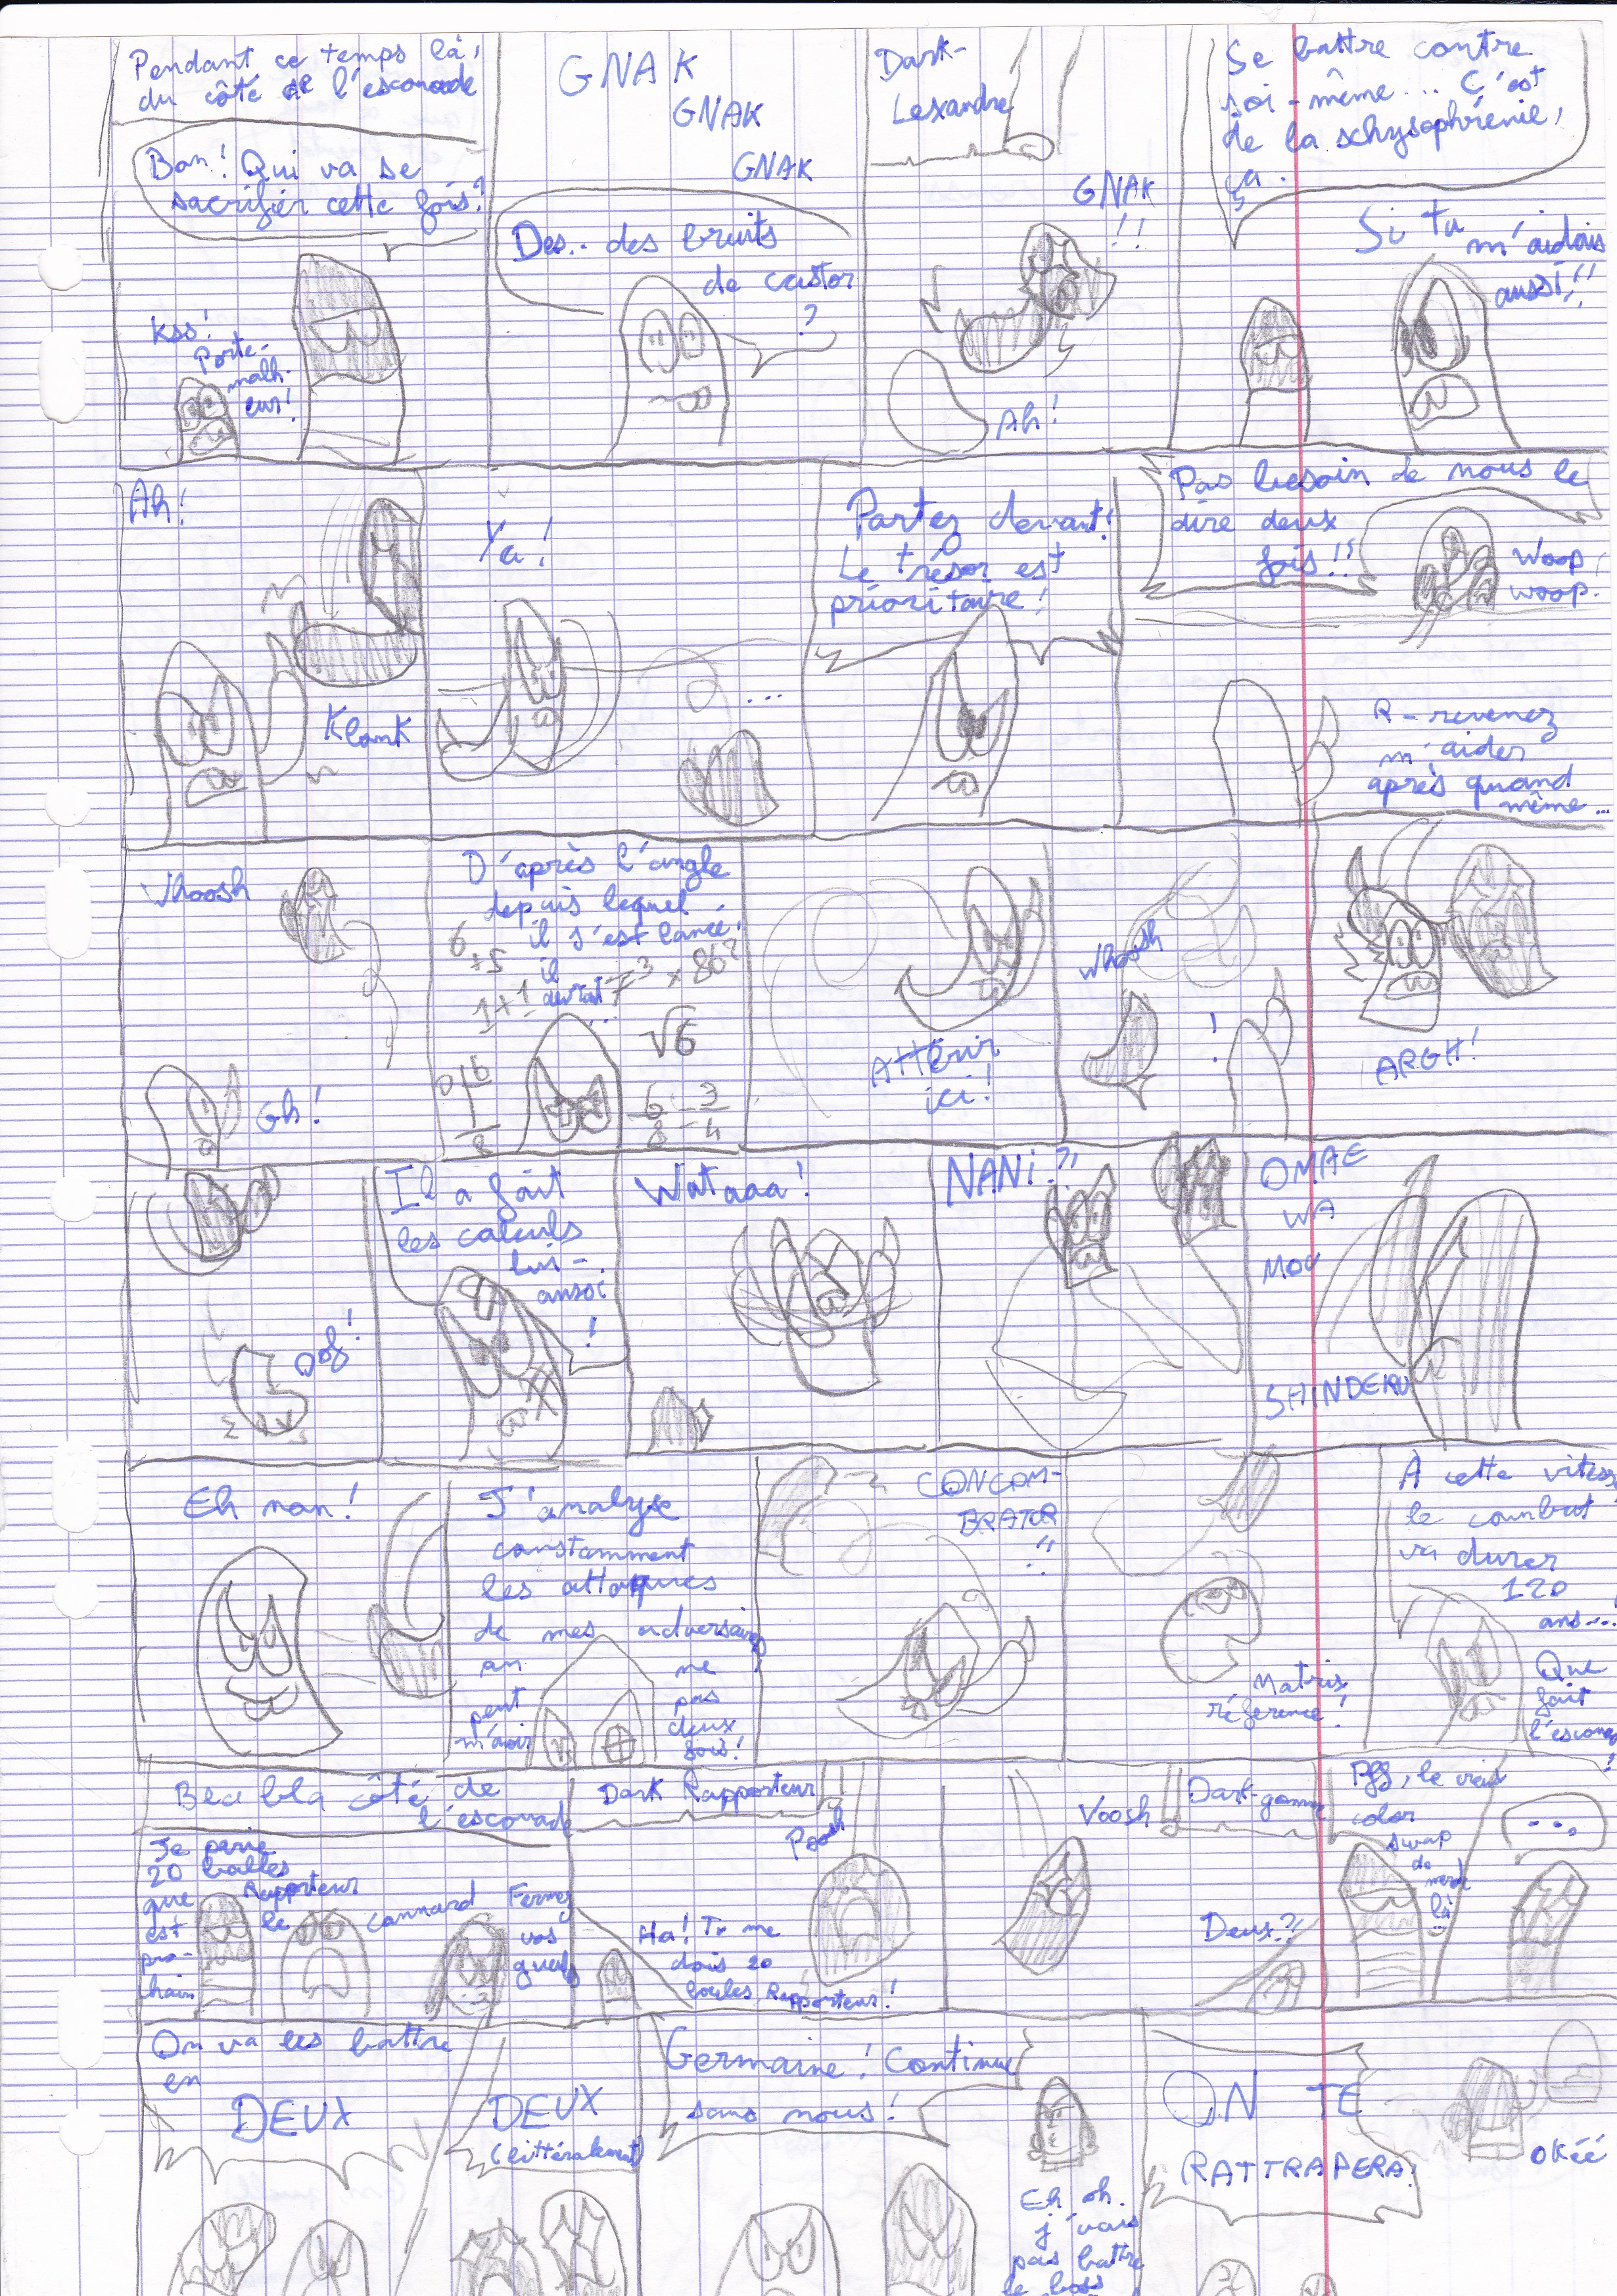 Pendant ce temps là,
du côté de l'escouade
Bon! Qui va se
sacrifier cette fois?
Kss!
Porte-
malh-
eur!
GNAK
GNAK
GNAK
Des.. des bruits
de castor
?
Dark-
Lexandre
GNAK
!!
Ah!
Se battre contre
soi-même... C'est
de la schysophrénie,
ça.
Si tu
m'aidais
aussi!!
Ah!
Klonk
Ya!
...
Partez devant!
Le trésor est
prioritaire!
Pas besoin de nous le
dire deux
fois!!
Woop
woop.
R-revenez
m'aider
après quand
même...
Whoosh
Gh!
D'après l'angle
depuis lequel
il s'est lancé,
il
devrait
...
6
+5
1+1
√6
Atterir
ici!
Whoosh
!
ARGH!
Oof!
Il a fait
les calculs
lui-
aussi
!
Wataaa!
NANi?!
OMAE
WA
MOU
SHINDERU
Eh non!
J'analyse
constamment
les attaques
de mes adversaires
on ne
peut pas
m'avoir deux
fois!
CONCOM-
BRATOR
!!
Matrix
référence!
A cette vitesse
le combat
va durer
120
ans...!
Que
fait
l'escouade
?
Bla bla côté de
l'escouade
Je parie
20 balles
que Rapporteur
est le
pro-
chain
Connard
Fermez
vos
gueules
Dark Rapporteur
Poosh
Ha! Tu me
dois 20
boules Rapporteur!
Voosh
Dark-gomme
Deux?!
Pff, le vieux
color
swap
de
merde
là
...
On va les battre
en
DEUX
DEUX
(littéralement)
Germaine! Continue
sans nous!
Eh oh.
j'vais
pas battre
le boss
ON TE
RATTRAPERA!
OKéé